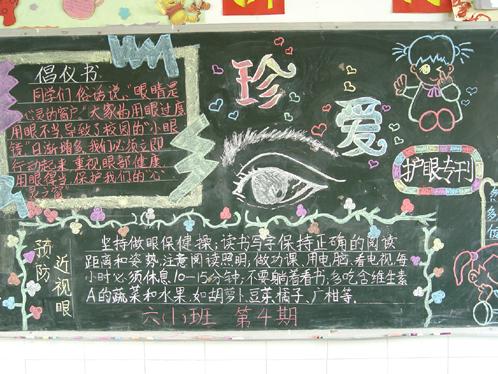 倡仪书
同学们俗话说:“眼睛是
心灵的窗户”大家由用眼过度
用眼不当导致了校园的“小眼
镜”日渐增多,我们必须立即
行动起来,重视眼部健康
用眼得当,保护我们的“心
灵之窗”
珍
爱
护眼专刊
预防
近视眼
坚持做眼保健操;读书写字保持正确的阅读
距离和姿势,注意阅读照明,做功课、用电脑、看电视,每
小时必须休息10-15分钟,不要躺着看书;多吃含维生素
A的蔬菜和水果,如胡萝卜、豆菜、橘子、广柑等。
六(1)班 第4期